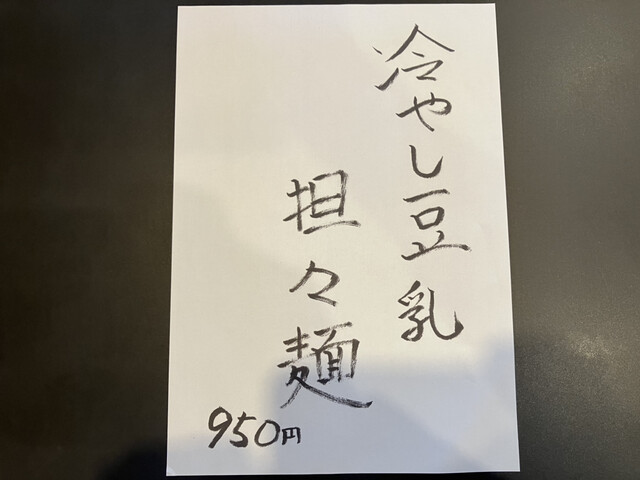 冷やし豆乳
担々麺
950円